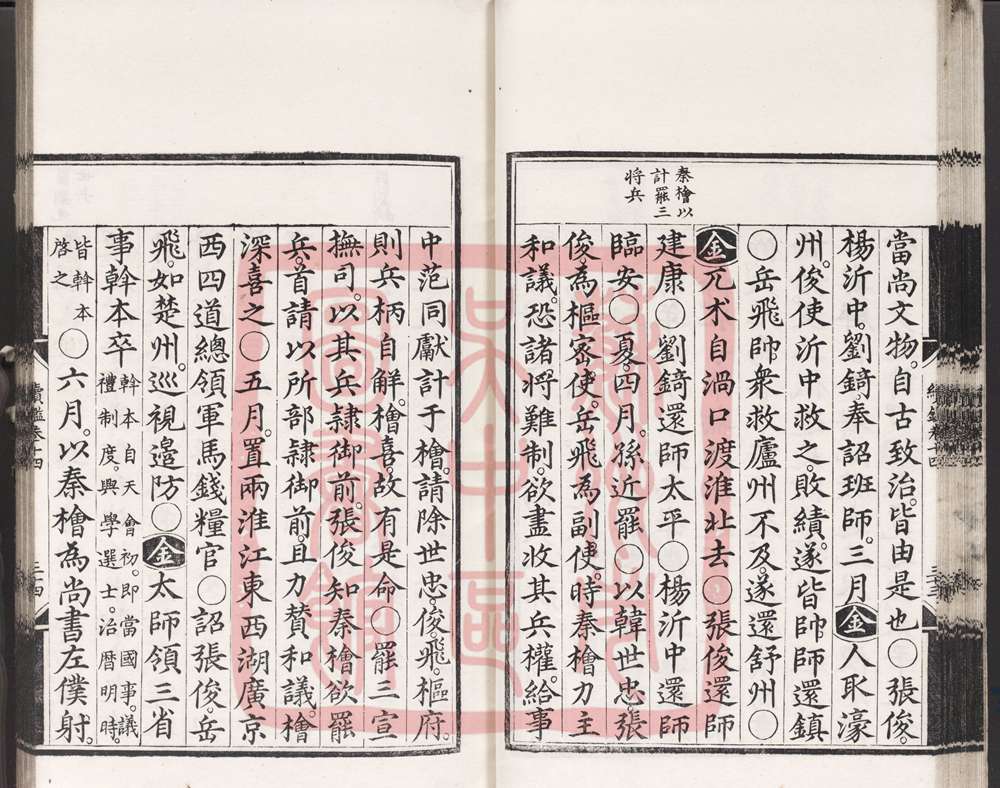 當尚文物。自古致治。皆由是也〇張俊。
楊沂中。劉錡。奉詔班師。三月金人取濠
州。俊使沂中救之。敗績。遂皆帥師還鎮
〇岳飛帥衆救廬州不及。遂還舒州〇
金兀术自渦口渡淮北去〇張俊還師
建康〇劉錡還師太平〇楊沂中還師
臨安〇夏。四月。孫近罷〇以韓世忠。張
俊為樞密使。岳飛為副使。時秦檜力主
和議。恐諸將難制。欲盡收其兵權。給事
秦檜以
計罷三
將兵
中范同獻計于檜。請除世忠。俊。飛。樞府。
則兵柄自解。檜喜。故有是命〇罷三宣
撫司。以其兵隸御前。張俊知秦檜欲罷
兵。首請以所部隸御前。且力贊和議。檜
深喜之〇五月。置兩淮江東西湖廣京
西四道總領軍馬錢糧官〇詔張俊。岳
飛。如楚州。巡視邊防〇金太師領三省
事斡本卒斡本自天會初。即當國事。議
禮制度。興學選士。治曆明時。
皆斡本
啓之〇六月。以秦檜為尚書左僕射。
續鑑卷十四
三十四